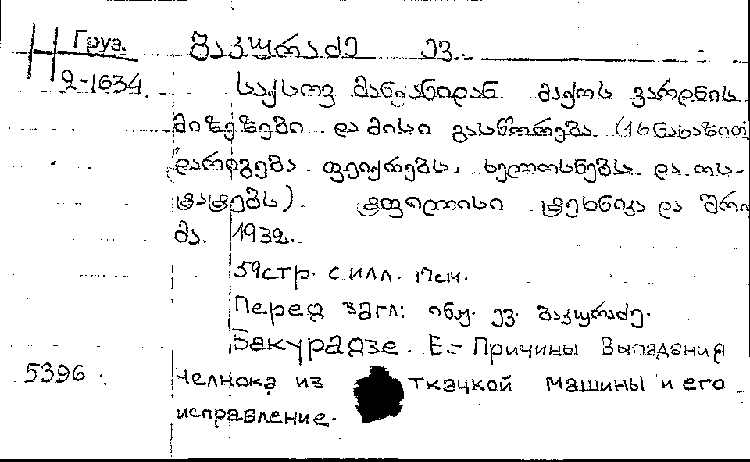 Груз. ბაკურაძე ევ.
2-1634. საქსოვ მანქანიდან მაქოს ვარდნის
მიზეზები და მისი გასწორება. (16 ნახაზით
დარიგება ფეიქრებს, ხელოსნებს და ოს-
ტატებს). ტფილისი ტეხნიკა და შრო
მა. 1932.
59стр. с илл. 17см.
Перед загл: ინჟ. ევ. ბაკურაძე.
Бакурадзе. Е.- Причины выпадения
5396. челнока из ткацкой машины и его
исправление.